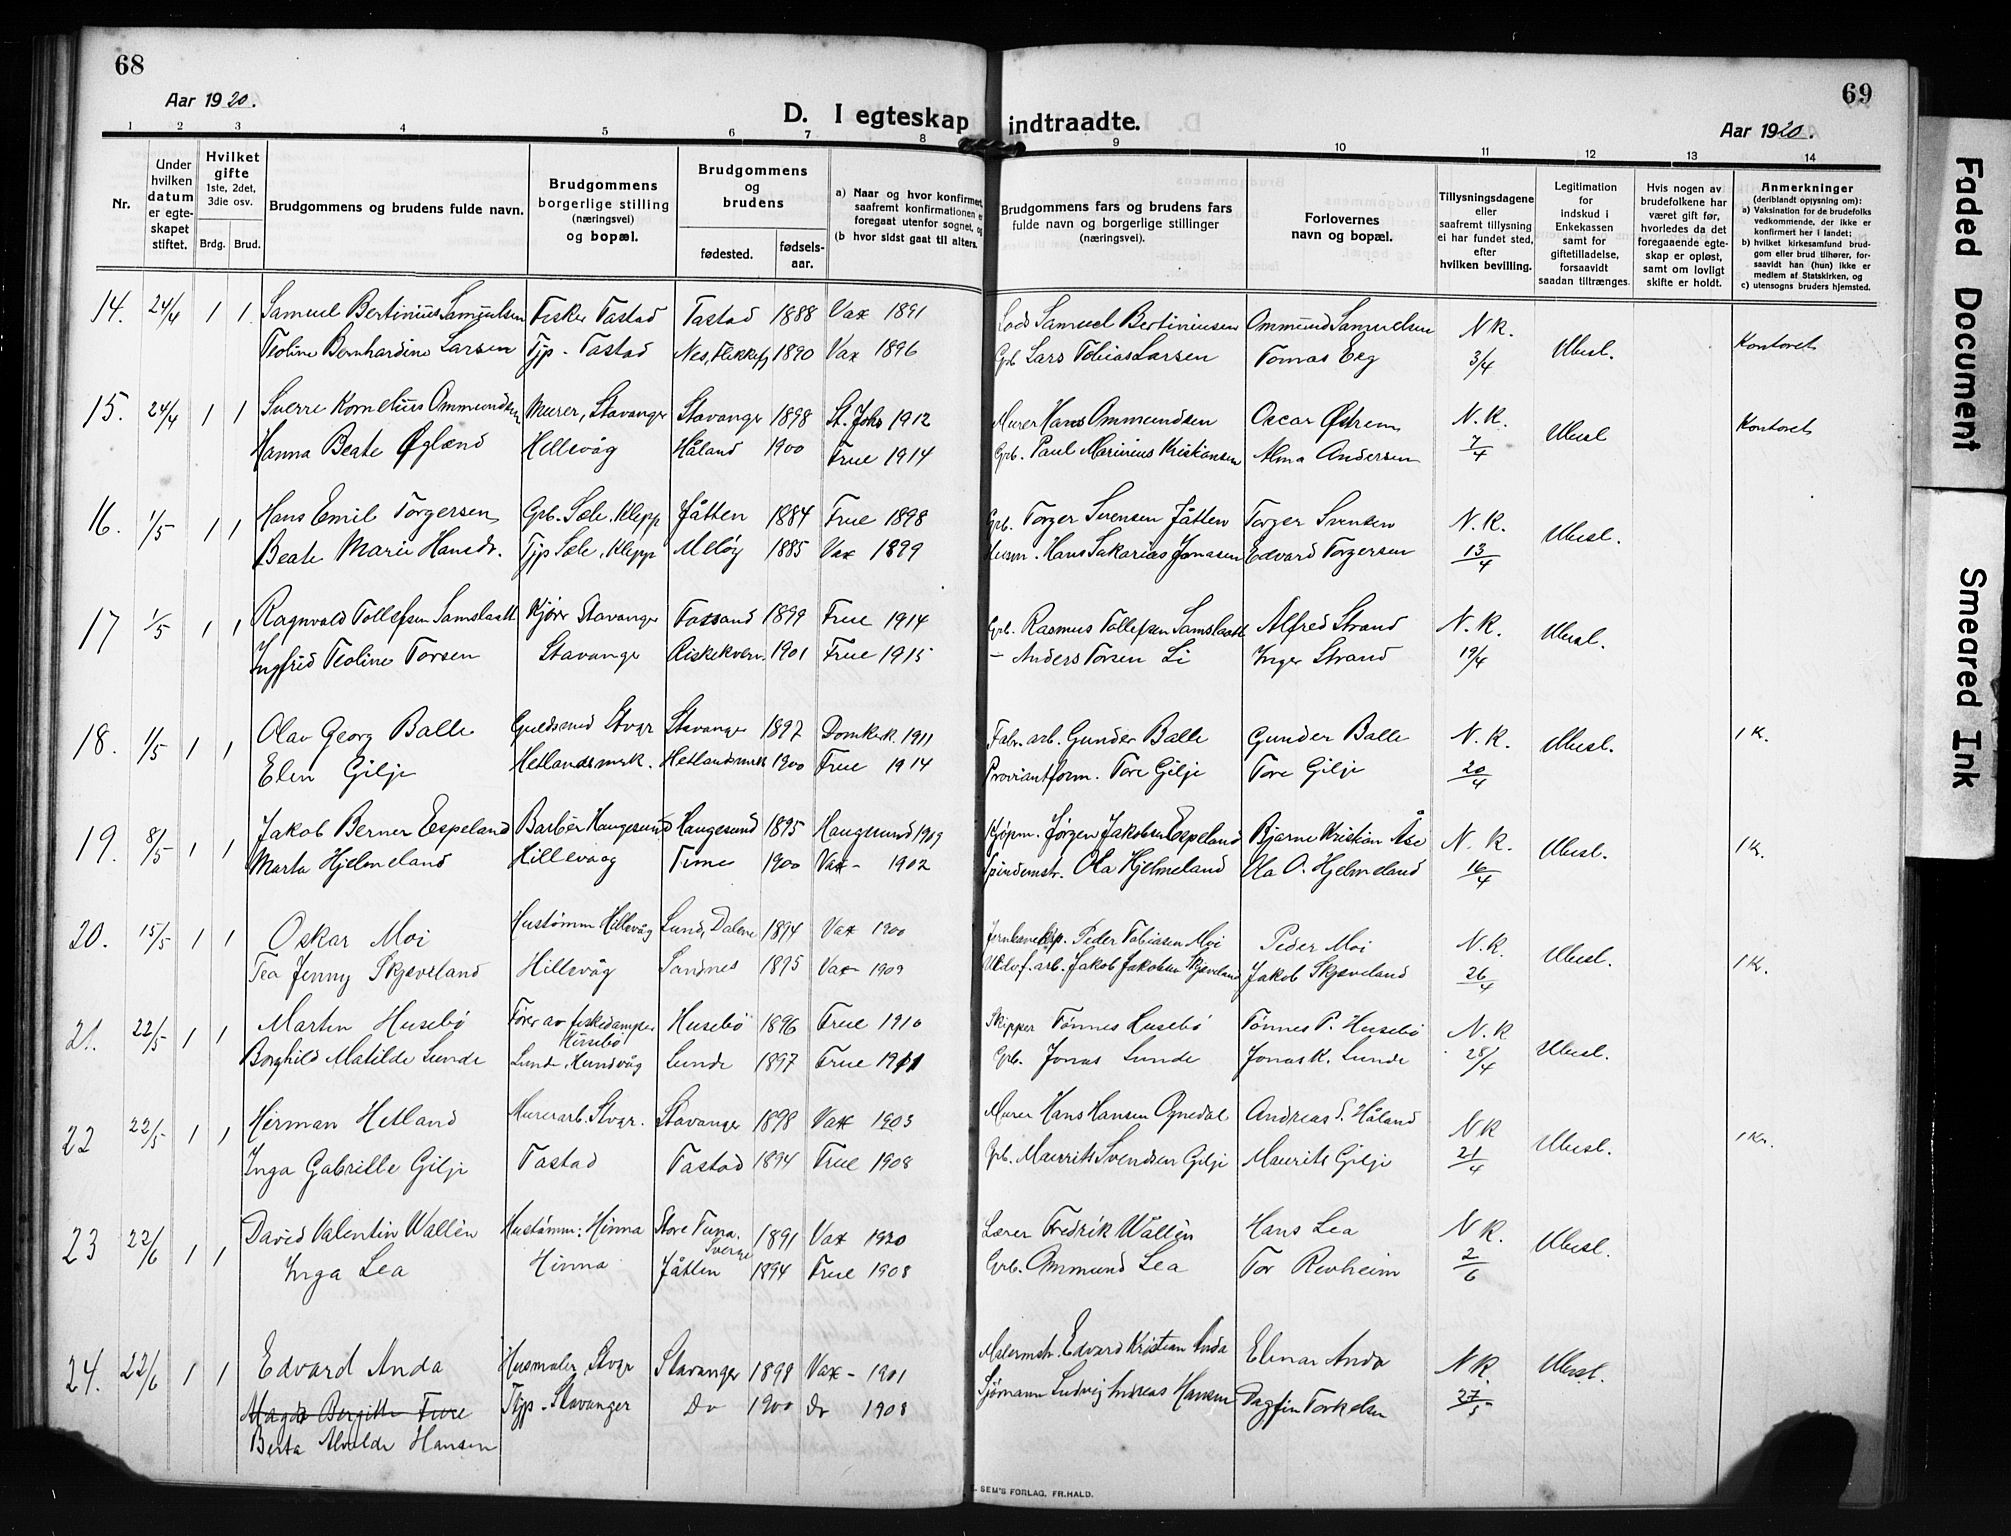 68
Aar 1920.
D. I egteskap indtraadte.
69
Aar 1920.
1 2 3 4 5 6 7 8 9 10 11 12 13 14
Nr.
Under hvilken datum er egteskapet stiftet.
Hvilket gifte 1ste, 2det, 3die osv.
Brdg. Brud.
Brudgommens og brudens fulde navn.
Brudgommens borgerlige stilling (næringsvei) og bopæl.
Brudgommens og brudens
fødested.
fødselsaar.
a) Naar og hvor konfirmert, saafremt konfirmationen er foregaat utenfor sognet, og
(b hvor sidst gaat til alters.
Brudgommens fars og brudens fars fulde navn og borgerlige stillinger (næringsvei).
Forlovernes navn og bopæl.
Tillysningsdagene eller saafremt tillysning ei har fundet sted, efter hvilken bevilling.
Legitimation for indskud i Enkekassen samt for giftetilladelse, forsaavidt saadan tiltrænges.
Hvis nogen av brudefolkene har været gift før, hvorledes da det foregaaende egteskap er opløst, samt om lovligt skifte er holdt.
Anmerkninger (deriblandt oplysning om):
a) Vaksination for de brudefolks vedkommende, der ikke er konfirmert her i landet;
b) hvilket kirkesamfund brudgom eller brud tilhører, forsaavidt han (hun) ikke er medlem af Statskirken, og
c) utensogns bruders hjemsted.
14. 24/4 1 1 Samuel Bertinius Samuelsen Fisker Tastad Tastad 1888 Vax 1891 Lods Samuel Bertiniusen Ommund Samuelsen N.K. 3/4 Ubesl. Kontoret
Teoline Bernhardine Larsen Tjp. Tastad Nes, Flekkefj 1890 Vax 1896 Grb Lars Tobias Larsen Tomas Eeg
15. 24/4 1 1 Sverre Kornelius Ommundsen Murer, Stavanger Stavanger 1898 St. Johs 1912 Murer Hans Ommundsen Oscar Østrem N.K. 7/4 Ubesl Kontoret
Hanna Beate Øglænd Hillevåg Håland 1900 Frue 1914 Grb. Paul Marinius Kristiansen Alma Andersen
16. 1/5 1 1 Hans Emil Torgersen Grb. Sele, Klepp Jåtten 1884 Frue 1898 Grb. Torger Svensen Jåtten Torger Svensen N.K. 13/4 Ubesl.
Beate Marie Hansdr. Tjp Sele, Klepp Meløy 1885 Vax 1899 Husm. Hans Sakarias Jonassen Edvard Torgersen
17 1/5 1 1 Ragnvald Tollefsen Samslaatt Kjører Stavanger Fossand 1899 Frue 1914 Grb. Rasmus Tollefsen Samslaatt Alfred Strand N.K. 19/4 Ubesl.
Ingfrid Teoline Torsen Stavanger Riskekvern 1901 Frue 1915 - Anders Torsen Li Inger Strand
18. 1/5 1 1 Olav Georg Balle Guldsmed Stvgr Stavanger 1897 Domkrk. 1911 Fabr. arb. Gunder Balle Gunder Balle N.K. 20/4 Ubesl. 1 K.
Elen Gilje Hetlandsmrk. Hetlandsmrk 1900 Frue 1914 Proviantform. Tore Gilje Tore Gilje
19. 8/5 1 1 Jakob Berner Espeland Barber Haugesund Haugesund 1895 Haugesund 1909 Kjøpm. Jørgen Jakobsen Espeland Bjarne Kristian Åse N.K. 16/4 Ubesl. 1 Kr.
Marta Hjelmeland Hillevaag Time 1900 Vax- 1902 Spindemstr. Ola Hjelmeland Ola O. Hjelmeland
20. 15/5 1 1 Oskar Moi Hustømm Hillevåg Lund, Dalene 1894 Vax 1900 Peder Tobiasen Moi Peder Moi N.K. 26/4 Ubesl. 1 Kr.
Tea Jenny Skjæveland Hillevåg Sandnes 1895 Vax 1909 Uldvf. arb. Jakob Jakobsen Skjæveland Jakob Skjæveland
21. 22/5 1 1 Martin Husebø Fører av fiskedamper Husebø Husebø 1896 Frue 1910 Skipper Tønnes Husebø Tønnes P. Husebø N.K. 28/4 Ubesl.
Borghild Matilde Lunde Lunde, Hundvåg Lunde 1897 Frue 1911 Grb. Jonas Lunde Jonas K. Lunde
22 22/5 1 1 Herman Hetland Murerarb. Stvgr. Stavanger 1898 Vax 1903 Murer Hans Hansen Ognedal Andreas S. Håland N.K 21/4 Ubesl. 1 Kr.
Inga Gabrielle Gilje Tastad Tastad 1894 Frue 1908 Grb. Maurits Svendsen Gilje Maurits Gilje
23 22/6 1 1 David Valentin Wallén Hustømm: Hinna Store Tuna, Sverge 1891 Vax 1920 Lærer Fredrik Wallén Hans Lea N.K. 2/6 Ubesl.
Inga Lea Hinna Jåtten 1894 Frue 1908 Grb. Ommund Lea Tor Revheim
24. 22/6 1 1 Edvard Anda Husmaler, Stvgr Stavanger 1898 Vax- 1901 Malermstr. Edvard Kristian Anda Einar Anda N.K. 27/5 Ubesl.
Magda Bergitte Fure Tjp. Stavanger Do 1900 Do 1908 Sjømann Ludvig Andreas Hansen Dagfin Torkelsen
Berta Alvilde Hansen
SEM'S FORLAG, FR.HALD.
Faded Document
Smeared Ink